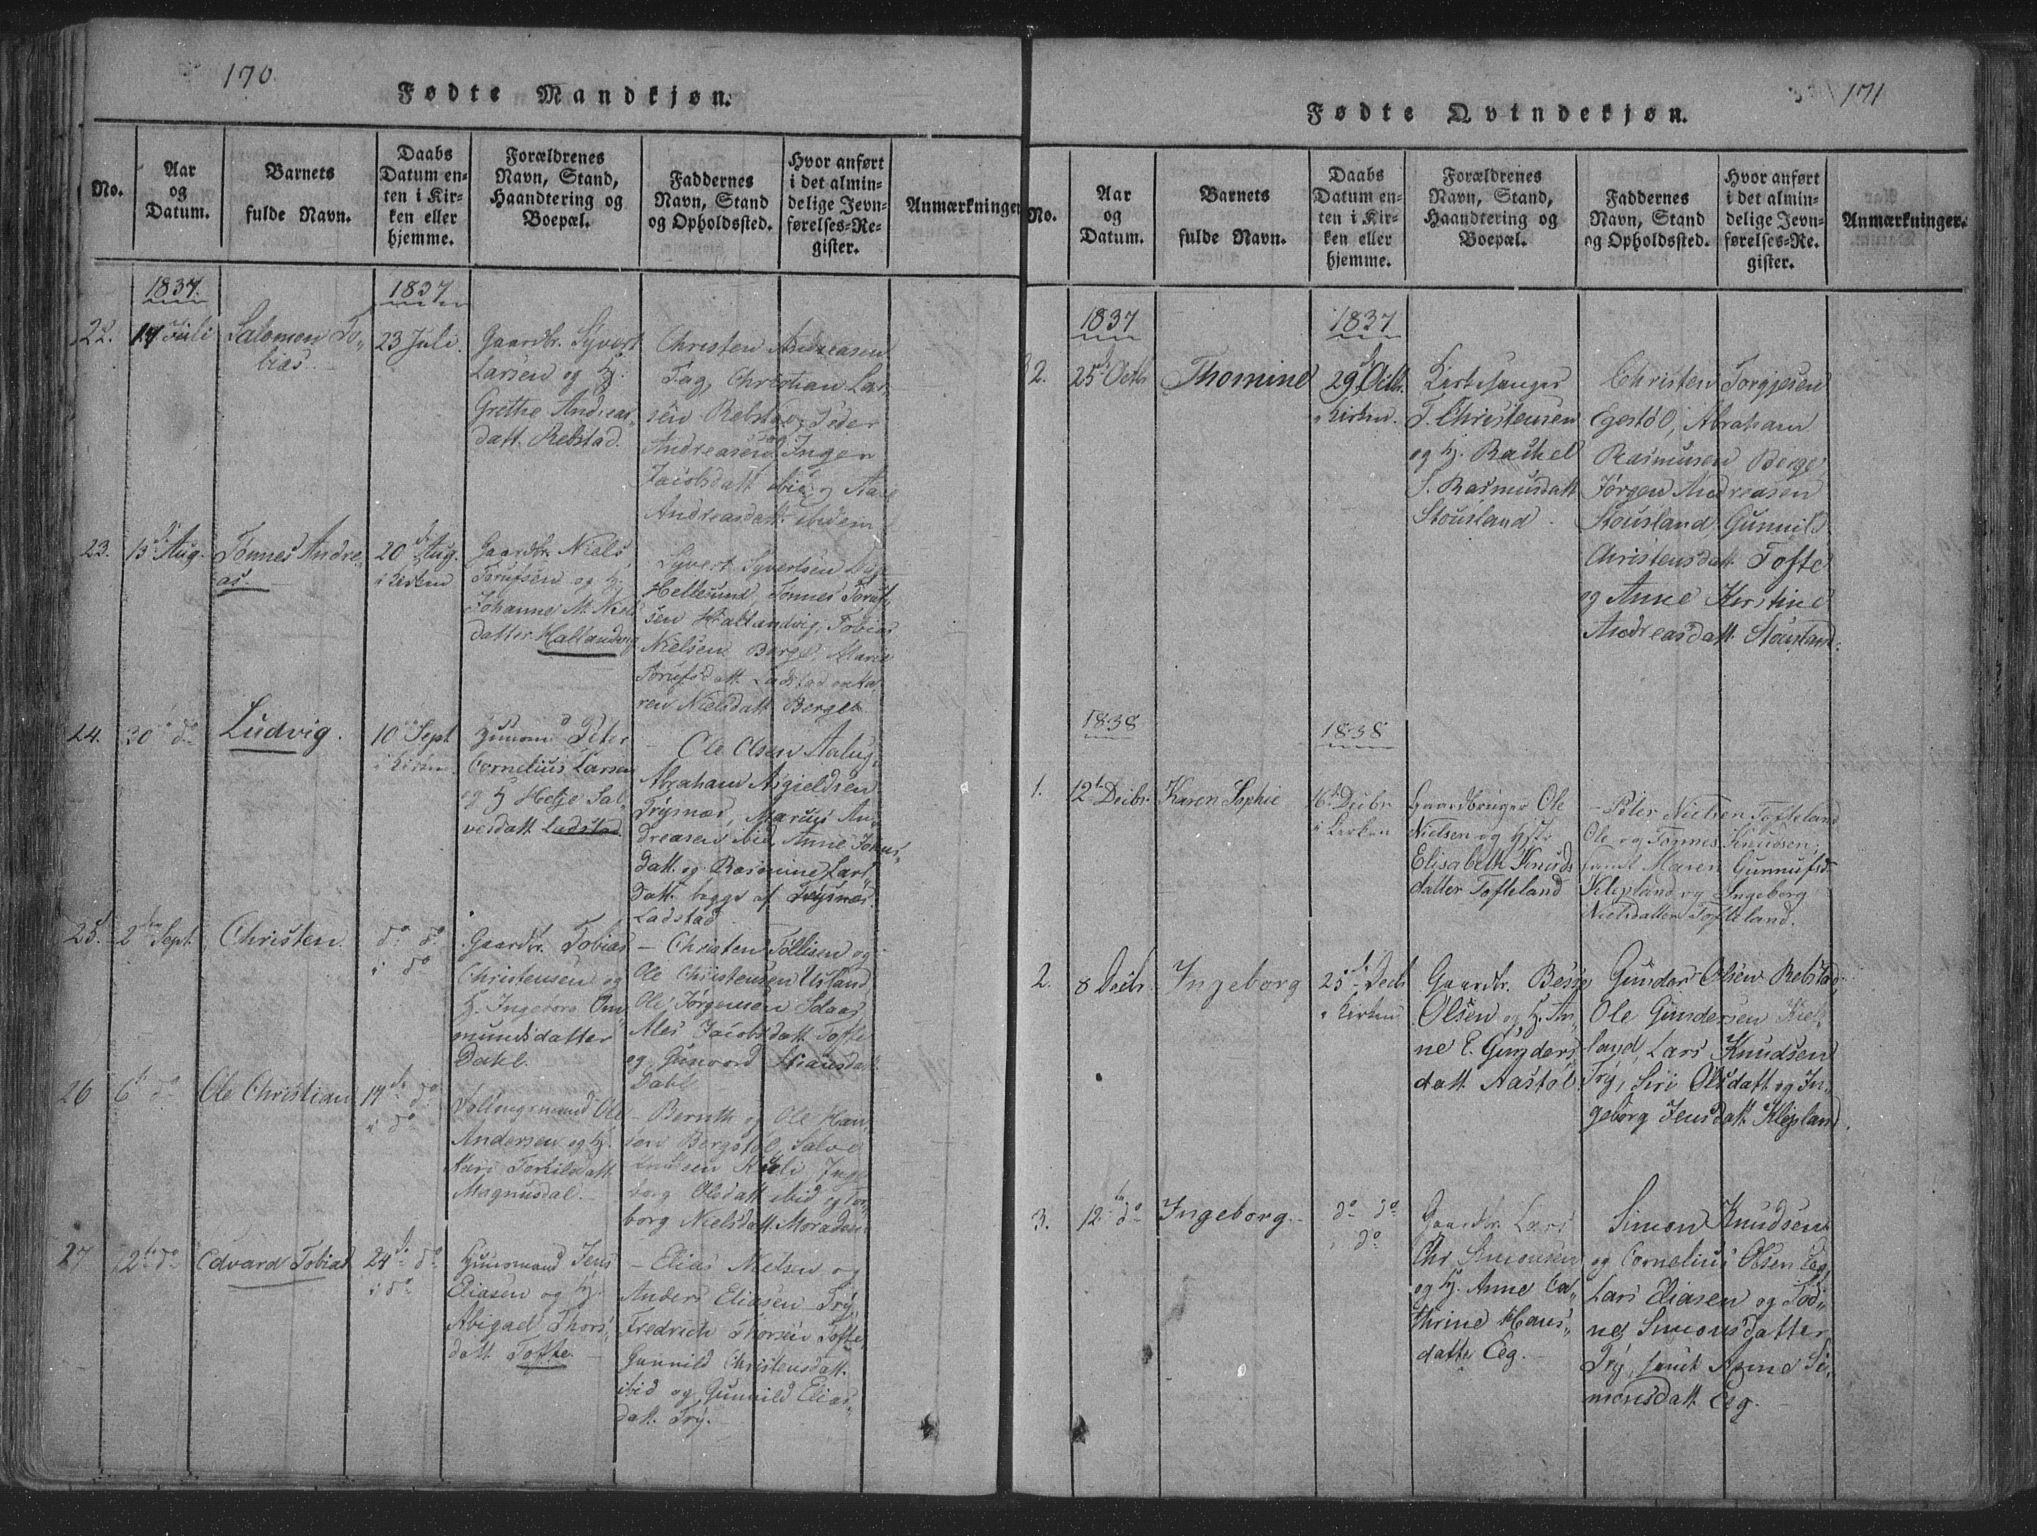 170
Fødte Mandkjøn.
No.
Aar
og
Datum.
Barnets
fulde Navn.
Daabs
Datum en-
ten i Kir-
ken eller
hjemme.
Forældrenes
Navn, Stand,
Haandtering og
Boepæl.
Faddernes
Navn, Stand
og Opholdssted.
Hvor anført
i det almin-
delige Jevn-
førelses-Re-
gister.
Anmærkninger
1837.
1837
22.
17 Juli
Salomon To-
bias.
23 Juli.
Gaardbr. Syvert
Larsen og H.
Grethe Andreas
datt. Rebstad.
Christen Andreasen
Fag, Christian Lar-
sen Rebstad, Peder
Andreasen Inger
Jacobsdatt ibid og
Andreasdatt ibidem
23.
15 Aug.
Tønnes Andre-
as.
20 Aug.
i Kirken
Gaardbr. Niels
Torufsen og H.
Johanne M. Niels
datter Hallandvig
Syvert Syvertsen
Hellesund, Tønnes Toruf-
sen Hallandvig, Tobias
Nielsen Berge, Maren
Torufsdatt Ladstad
ren Nielsdatt Berge
24.
30 do
Ludvig.
10 Sept
i Kirken
Huusmd Peter
Cornelius Larsen
og H Helje Sal-
versdatt Ladstad
Ole Olsen
Abraham Asgieldsen
Trysnæs, Marcus An-
dreasen ibid Anne
datt. og Rasmine Lars
datt. begge af Trysnæs
Ladstad
25.
2 Sept
Christen.
do do
i do
Gaardbr. Tobias
Christensen og
H. Ingeborg Om-
mundsdatter
Dahl.
— Christen Tollisen og
Ole Christensen Usland
Ole Jørgensen
Ales Jacobsdatt Tofte
og Gunvord
Dahl
26
6 do
Ole Christian
17 do
i do
Ole
Andersen og H.
Torkildsdatt
Magnusdal.
— Bernth og Ole Han-
sen Bergstøl, Salve
Inge
borg Olsdatt ibid og Tor-
borg Nielsdatt
27
12 do
Edvard Tobias
24 do
i do
Huusmand Jens
Eliasen og H.
Abigael Thors
datt. Tofte.
— Elias Nielsen og
Anders Eliasen Try,
Fredrich Thorsen Tofte
Gunnild Christensdatt.
ibid og Gunnild Elias
datt. Try.
171
Fødte Qvindekjøn.
No.
Aar
og
Datum.
Barnets
fulde Navn.
Daabs
Datum en-
ten i Kir-
ken eller
hjemme.
Forældrenes
Navn, Stand,
Haandtering og
Boepæl.
Faddernes
Navn, Stand
og Opholdssted.
Hvor anført
i det almin-
delige Jevn-
førelses-Re-
gister.
Anmærkninger.
1837
1837
25
Thomine
29
i Kirken.
Kirkesanger
T. Christensen
og H. Rachel
S. Rasmusdatt
Stousland.
Christen Torgjesen
Egestøl, Abraham
Rasmusen Berge
Jørgen Andreasen
Stousland, Gunnild
Christensdatt Tofte
og Anne Kirstine
Andreasdatt Stousland.
1838
1838
1.
12 Decbr.
Karen Sophie
16 Decbr
i Kirken
Gaardbruger Ole
Nielsen og Hstr.
Elisabeth Knuds
datter Tofteland
— Peter Nielsen Tofteland
Ole og Tønnes Knudsen
samt Maren Gunnufsd
Klepland og Ingeborg
Nielsdatter Tofteland.
2.
8 Decbr
Ingeborg
25 Decb
i Kirken
Gaardbr. Besse
Olsen og H. An-
ne E. Gunders
datt Aastøl
Gunder Olsen Rebstad
Ole Gundersen Klep-
land, Lars Knudsen
Try, Siri Olsdatt og In-
geborg Jensdatt Klepland.
3.
12 do
Ingeborg.
do do
i do
Gaardbr. Lars
Chr Simonsen
og H. Anne Ca-
thrine Hans
datter Eeg.
Simon Knudsen
og Cornelius Olsen Eeg,
Lars Eliasen og
ne Simonsdatter
Try, samt Anne Si-
monsdatt Eeg.